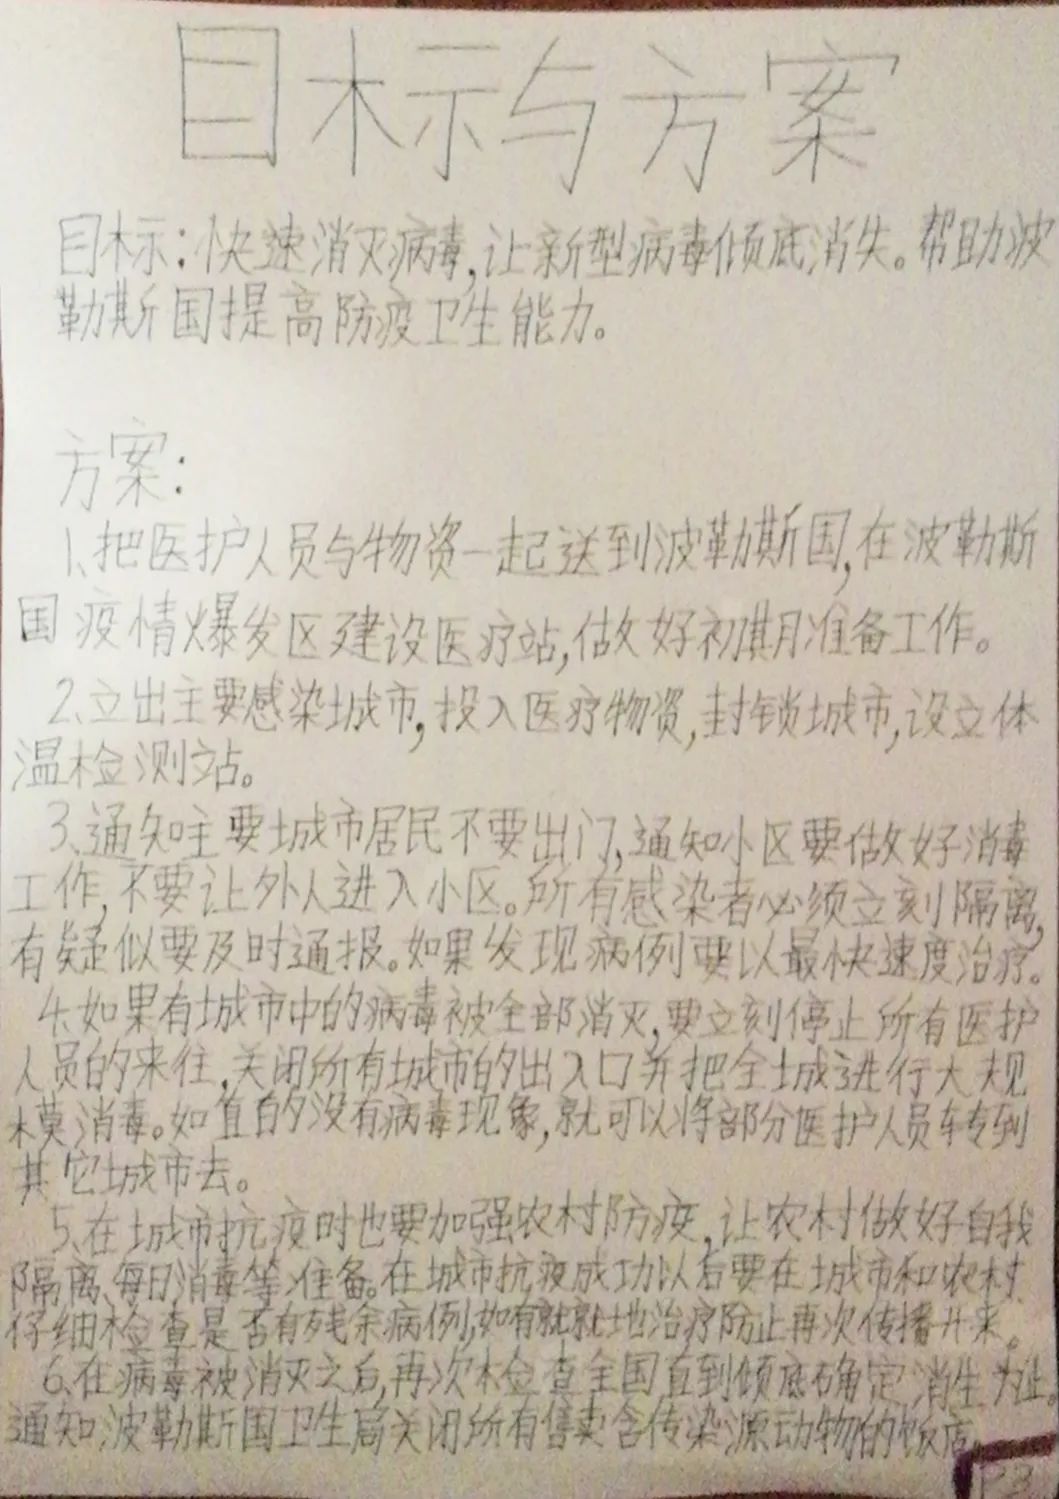 目标与方案
目标:快速消灭病毒,让新型病毒倾底消失。帮助波
勒斯国提高防疫卫生能力。
方案:
1、把医护人员与物资一起送到波勒斯国,在波勒斯
国疫情爆发区建设医疗站,做好初期准备工作。
2、立出主要感染城市,投入医疗物资,封锁城市,设立体
温检测站。
3、通知主要城市居民不要出门,通知小区要做好消毒
工作,不要让外人进入小区。所有感染者必须立刻隔离,
有疑似要及时通报。如果发现病例要以最快速度治疗。
4、如果有城市中的病毒被全部消灭,要立刻停止所有医护
人员的来往,关闭所有城市的出入口并把全城进行大规
模消毒。如值的没有病毒现象,就可以将部分医护人员转到
其它城市去。
5、在城市抗疫时也要加强农村防疫,让农村做好自我
隔离、每日消毒等准备。在城市抗疫成功以后要在城市和农村
仔细检查是否有残余病例,如有就就地治疗防止再次传播开来。
6、在病毒被消灭之后,再次检查全国直到倾底确定消生为止。
通知波勒斯国卫生局关闭所有售卖含传染源动物的饭店。
P3